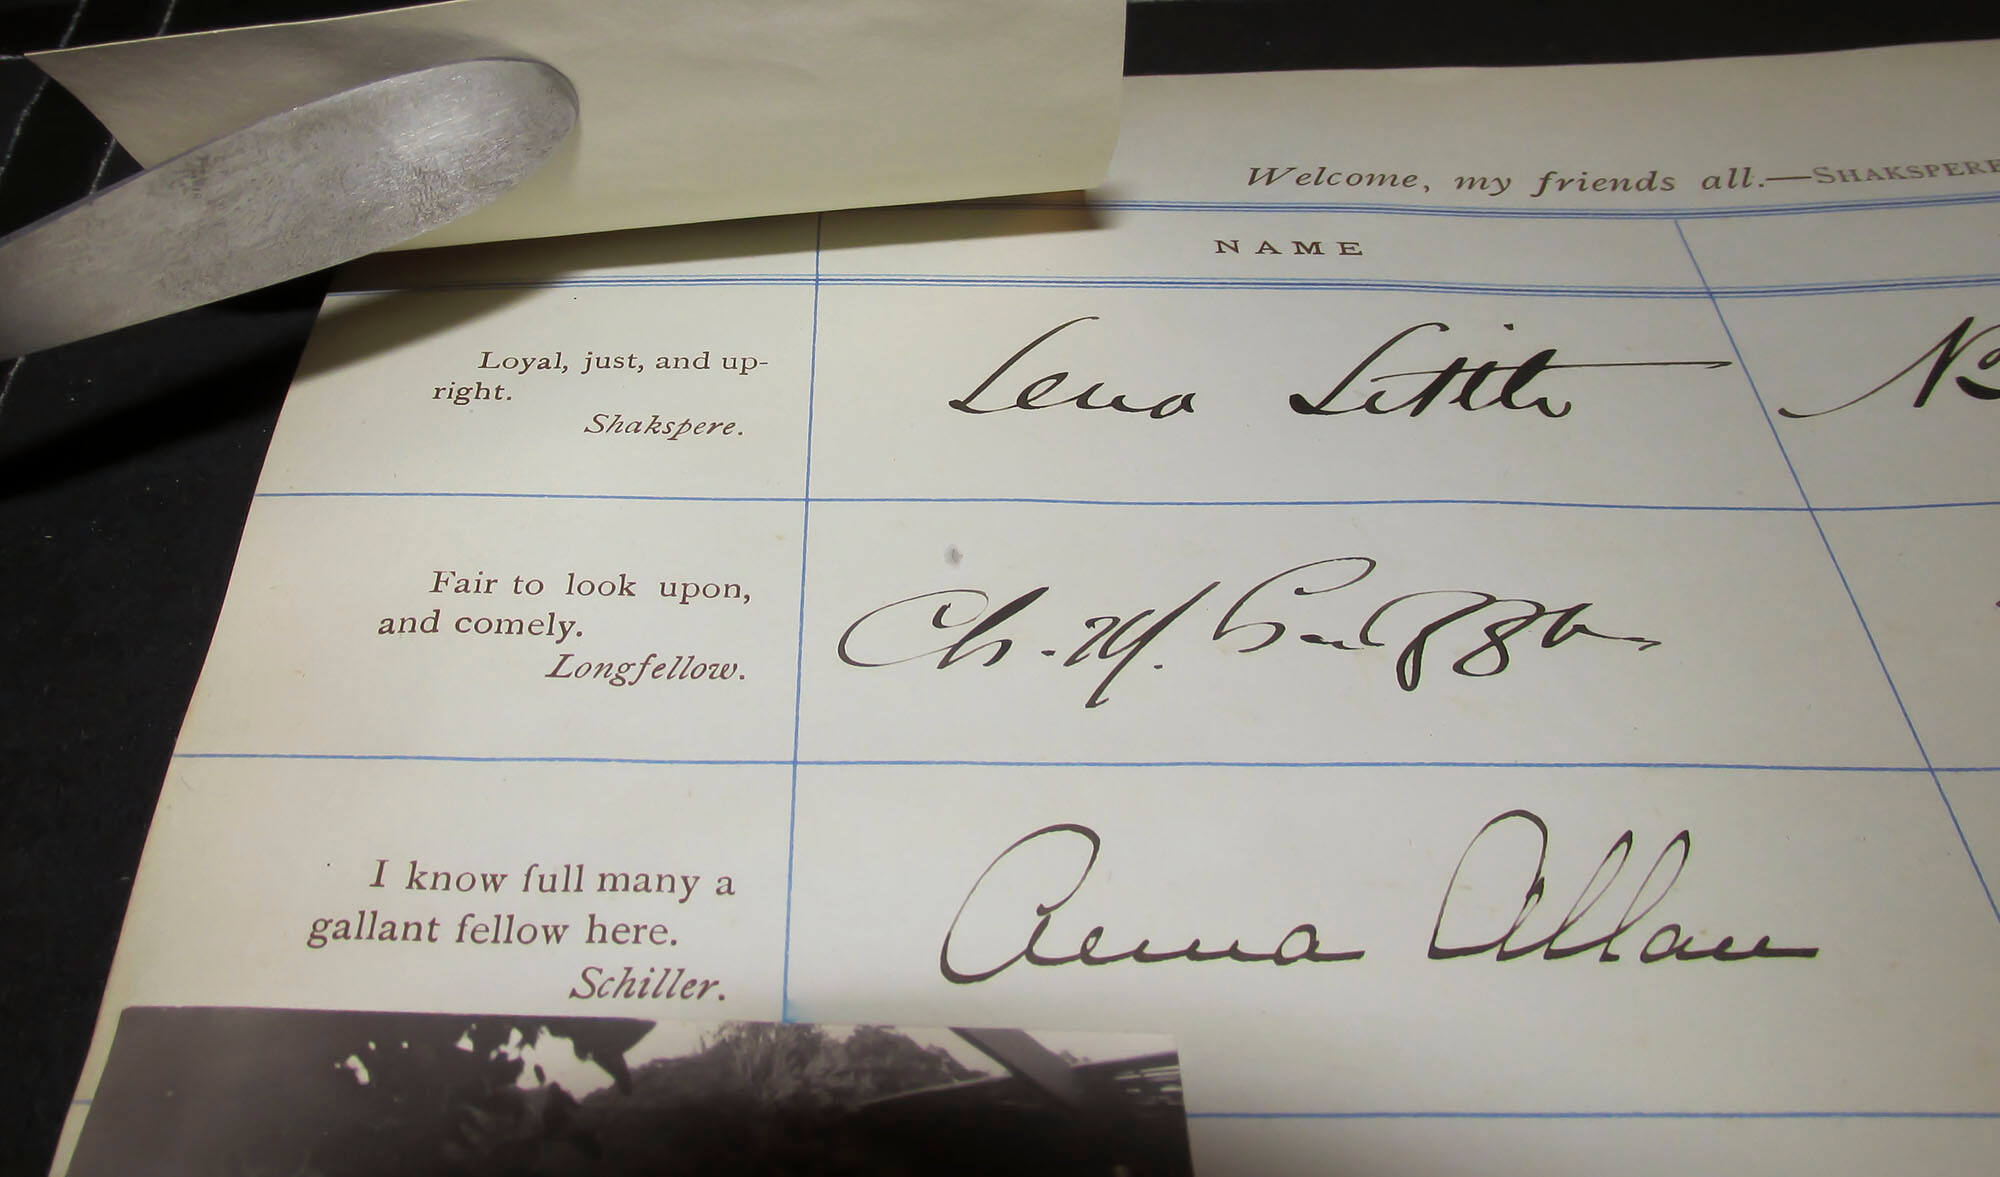 Welcome, my friends all.—SHAKSPERE
NAME
Loyal, just, and up-
right.
Shakspere.
Lena Little
Fair to look upon,
and comely.
Longfellow.
Ch. M.
I know full many a
gallant fellow here.
Schiller.
Anna Allan